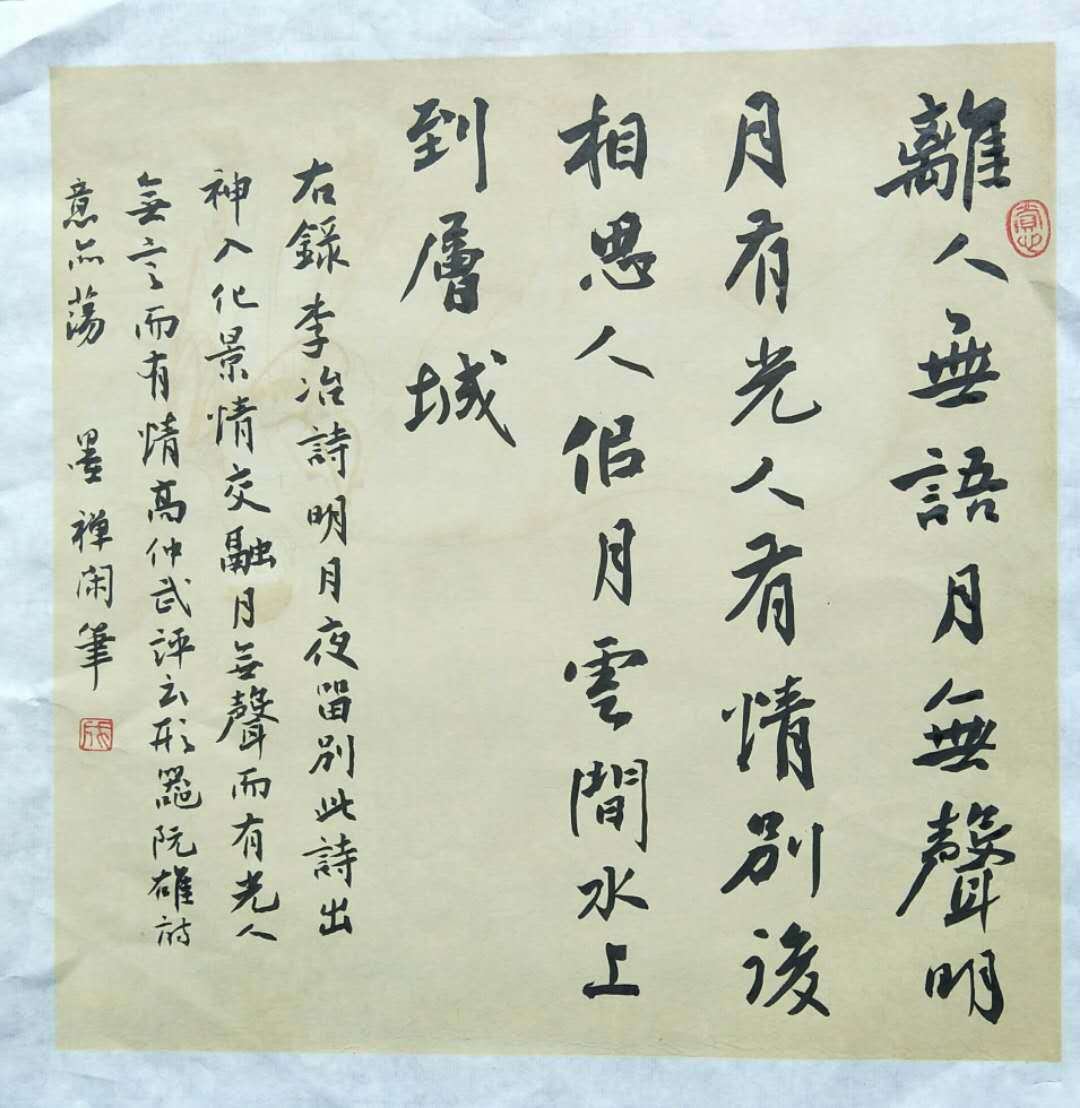 離人無語月無聲明
月有光人有情別後
相思人侶月雲間水上
到層城
右錄李冶詩明月夜留別此詩出
神入化景情交融月無聲而有光人
無言而有情高仲武評云形器阮雄詩
意亦蕩 墨禅闲筆